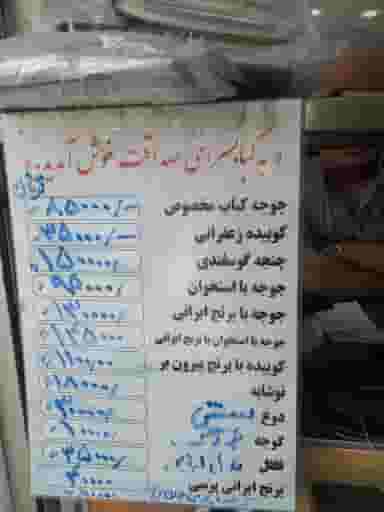 به کبابسرای صداقت خوش آمدید
تومان
جوجه کباب مخصوص ۸۵۰۰۰/
کوبیده زعفرانی ۳۵۰۰۰/
چنجه گوسفندی ۱۵۰۰۰۰/
جوجه با استخوان ۹۶۰۰۰/
جوجه با برنج ایرانی ۱۳۰۰۰۰/
جوجه با استخوان با برنج ایرانی ۱۳۵۰۰۰
کوبیده با برنج بیرون بر ۱۱۰۰۰۰
نوشابه ۱۸۰۰۰/
دوغ ۳۰۰۰۰/
گوجه ۱۰۰۰۰/
فلفل ۳۵۰۰۰/
برنج ایرانی پرسی ۴۰۰۰۰